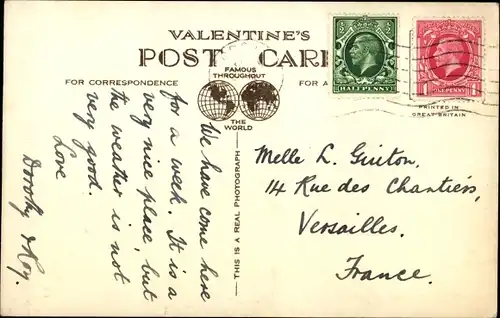 VALENTINE'S
POST CARD
FAMOUS
THROUGHOUT
THE
WORLD
FOR CORRESPONDENCE
FOR A
HALFPENNY
1 ONE PENNY 1
PRINTED IN
GREAT BRITAIN
THIS IS A REAL PHOTOGRAPH
We have come here
for a week. It is a
very nice place, but
the weather is not
very good.
Love
Dorothy & Roy.
Melle L. Guiton,
14 Rue des Chantiers,
Versailles.
France.